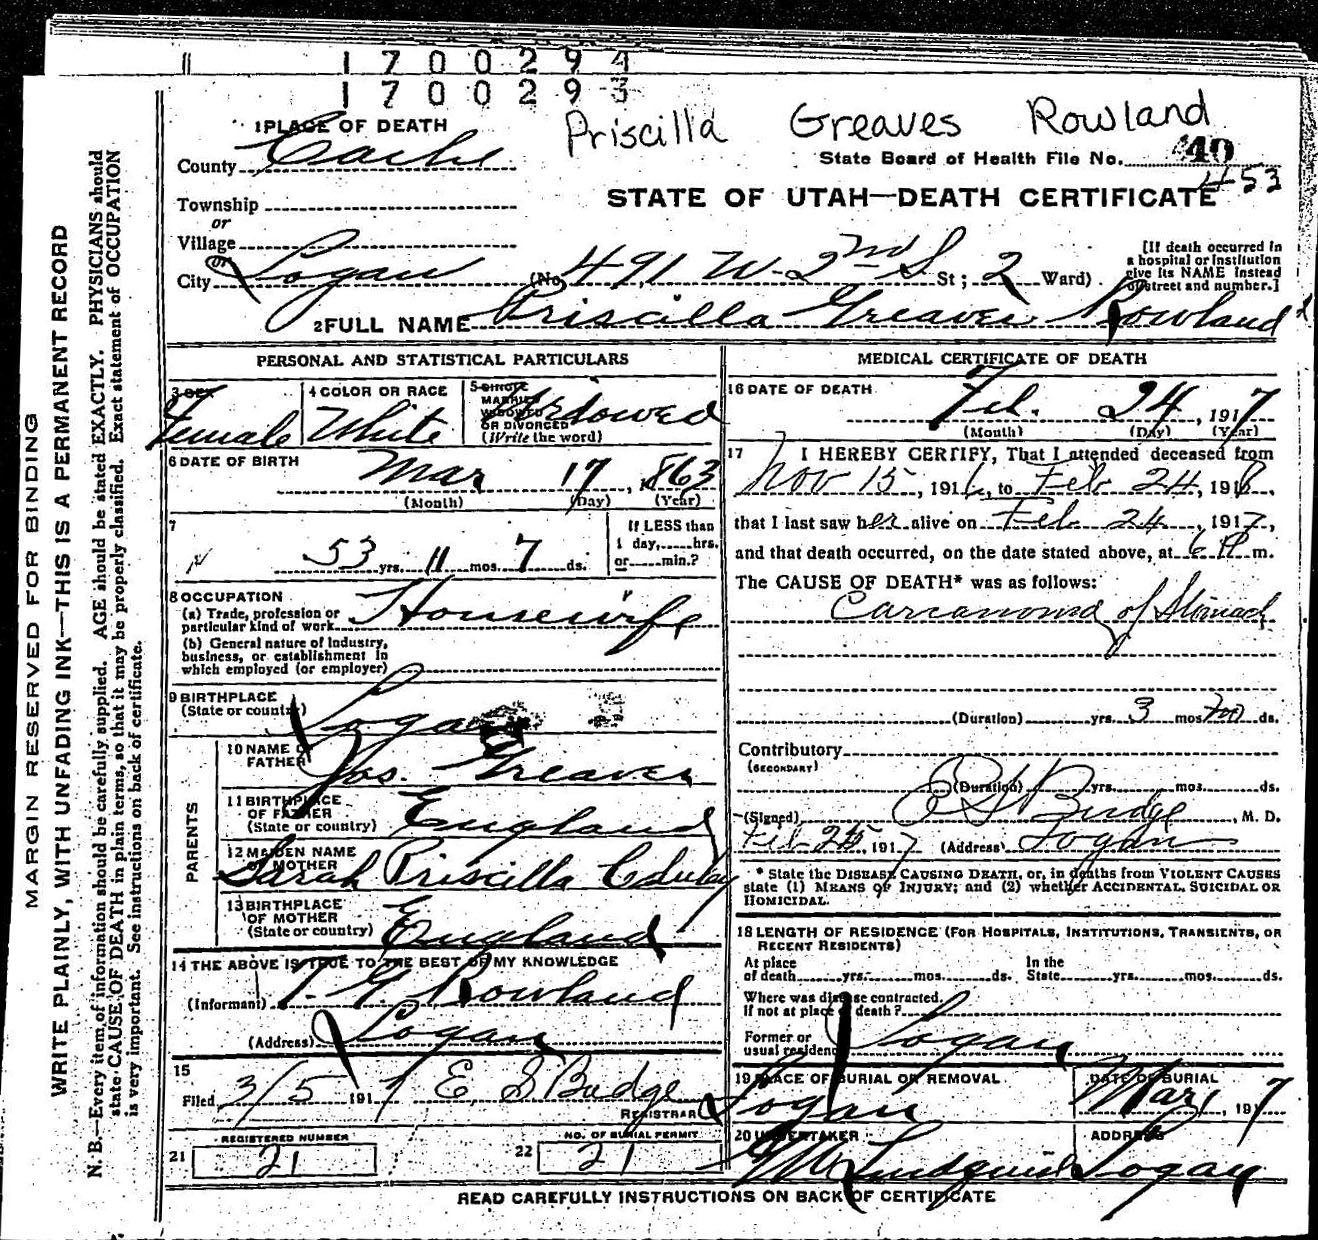 1700294
1700293
Priscilla Greaves Rowland
1 PLACE OF DEATH
County Cache
State Board of Health File No. 40
453
STATE OF UTAH—DEATH CERTIFICATE
Township
or
Village
or
City Logan (No. 491 W. 2nd S St; 2 Ward)
[If death occurred in
a hospital or institution
give its NAME instead
of street and number.]
2 FULL NAME Priscilla Greaves Rowland
PERSONAL AND STATISTICAL PARTICULARS
3 SEX
Female
4 COLOR OR RACE
White
5 SINGLE
MARRIED
WIDOWED
OR DIVORCED
(Write the word)
Widowed
6 DATE OF BIRTH
Mar 17, 1863
(Month) (Day) (Year)
7
53 yrs. 11 mos. 7 ds.
If LESS than
1 day, hrs.
or min.?
8 OCCUPATION
(a) Trade, profession or
particular kind of work Housewife
(b) General nature of industry,
business, or establishment in
which employed (or employer)
9 BIRTHPLACE
(State or country) Logan
PARENTS
10 NAME OF
FATHER Jos. Greaves
11 BIRTHPLACE
OF FATHER
(State or country) England
12 MAIDEN NAME
OF MOTHER
Sarah Priscilla
13 BIRTHPLACE
OF MOTHER
(State or country) England
14 THE ABOVE IS TRUE TO THE BEST OF MY KNOWLEDGE
(Informant) T. G. Rowland
(Address) Logan
15
Filed 3/5 1917 E. S. Budge
REGISTRAR
REGISTERED NUMBER
21 21
NO. OF BURIAL PERMIT
22 21
MEDICAL CERTIFICATE OF DEATH
16 DATE OF DEATH
Feb. 24, 1917
(Month) (Day) (Year)
17 I HEREBY CERTIFY, That I attended deceased from
Nov 15, 1916, to Feb 24, 191
that I last saw her alive on Feb 24, 1917,
and that death occurred, on the date stated above, at 6 P m.
The CAUSE OF DEATH* was as follows:
Carcanoma of Stomach
(Duration) yrs. 3 mos. ds.
Contributory
(SECONDARY)
(Duration) yrs. mos. ds.
(Signed) E S Budge, M. D.
Feb 25, 1917 (Address) Logan
* State the DISEASE CAUSING DEATH, or, in deaths from VIOLENT CAUSES
state (1) MEANS OF INJURY; and (2) whether ACCIDENTAL, SUICIDAL OR
HOMICIDAL.
18 LENGTH OF RESIDENCE (FOR HOSPITALS, INSTITUTIONS, TRANSIENTS, OR
RECENT RESIDENTS)
At place
of death yrs. mos. ds.
In the
State yrs. mos. ds.
Where was disease contracted,
If not at place of death?
Former or
usual residence Logan
19 PLACE OF BURIAL OR REMOVAL
Logan
DATE OF BURIAL
Mar, 1917
20 UNDERTAKER
Lundquist
ADDRESS
Logan
READ CAREFULLY INSTRUCTIONS ON BACK OF CERTIFICATE
MARGIN RESERVED FOR BINDING
WRITE PLAINLY, WITH UNFADING INK—THIS IS A PERMANENT RECORD
N. B.—Every item of information should be carefully supplied. AGE should be stated EXACTLY. PHYSICIANS should
state CAUSE OF DEATH in plain terms, so that it may be properly classified. Exact statement of OCCUPATION
is very important. See instructions on back of certificate.